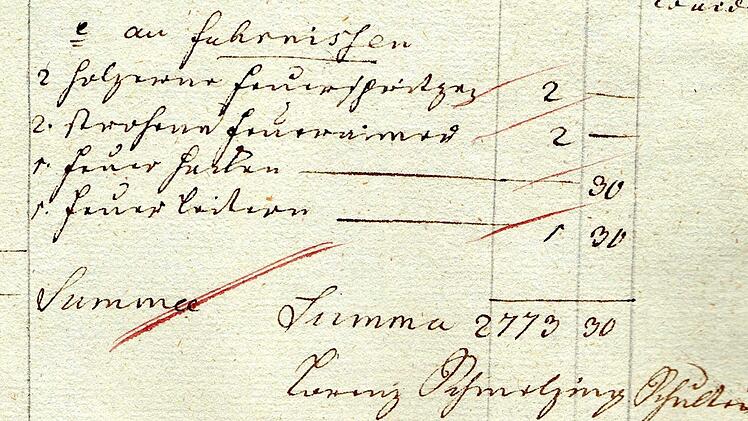 e an Fahrnissen
2 holzerne Feuerspritzen 2 —
2. strohene Feueraimer 2 —
1. Feuer Hacken — 30
1. Feuer Leitern — 1 30
Summa
Summa 2773 30
Lorenz Schmelzing